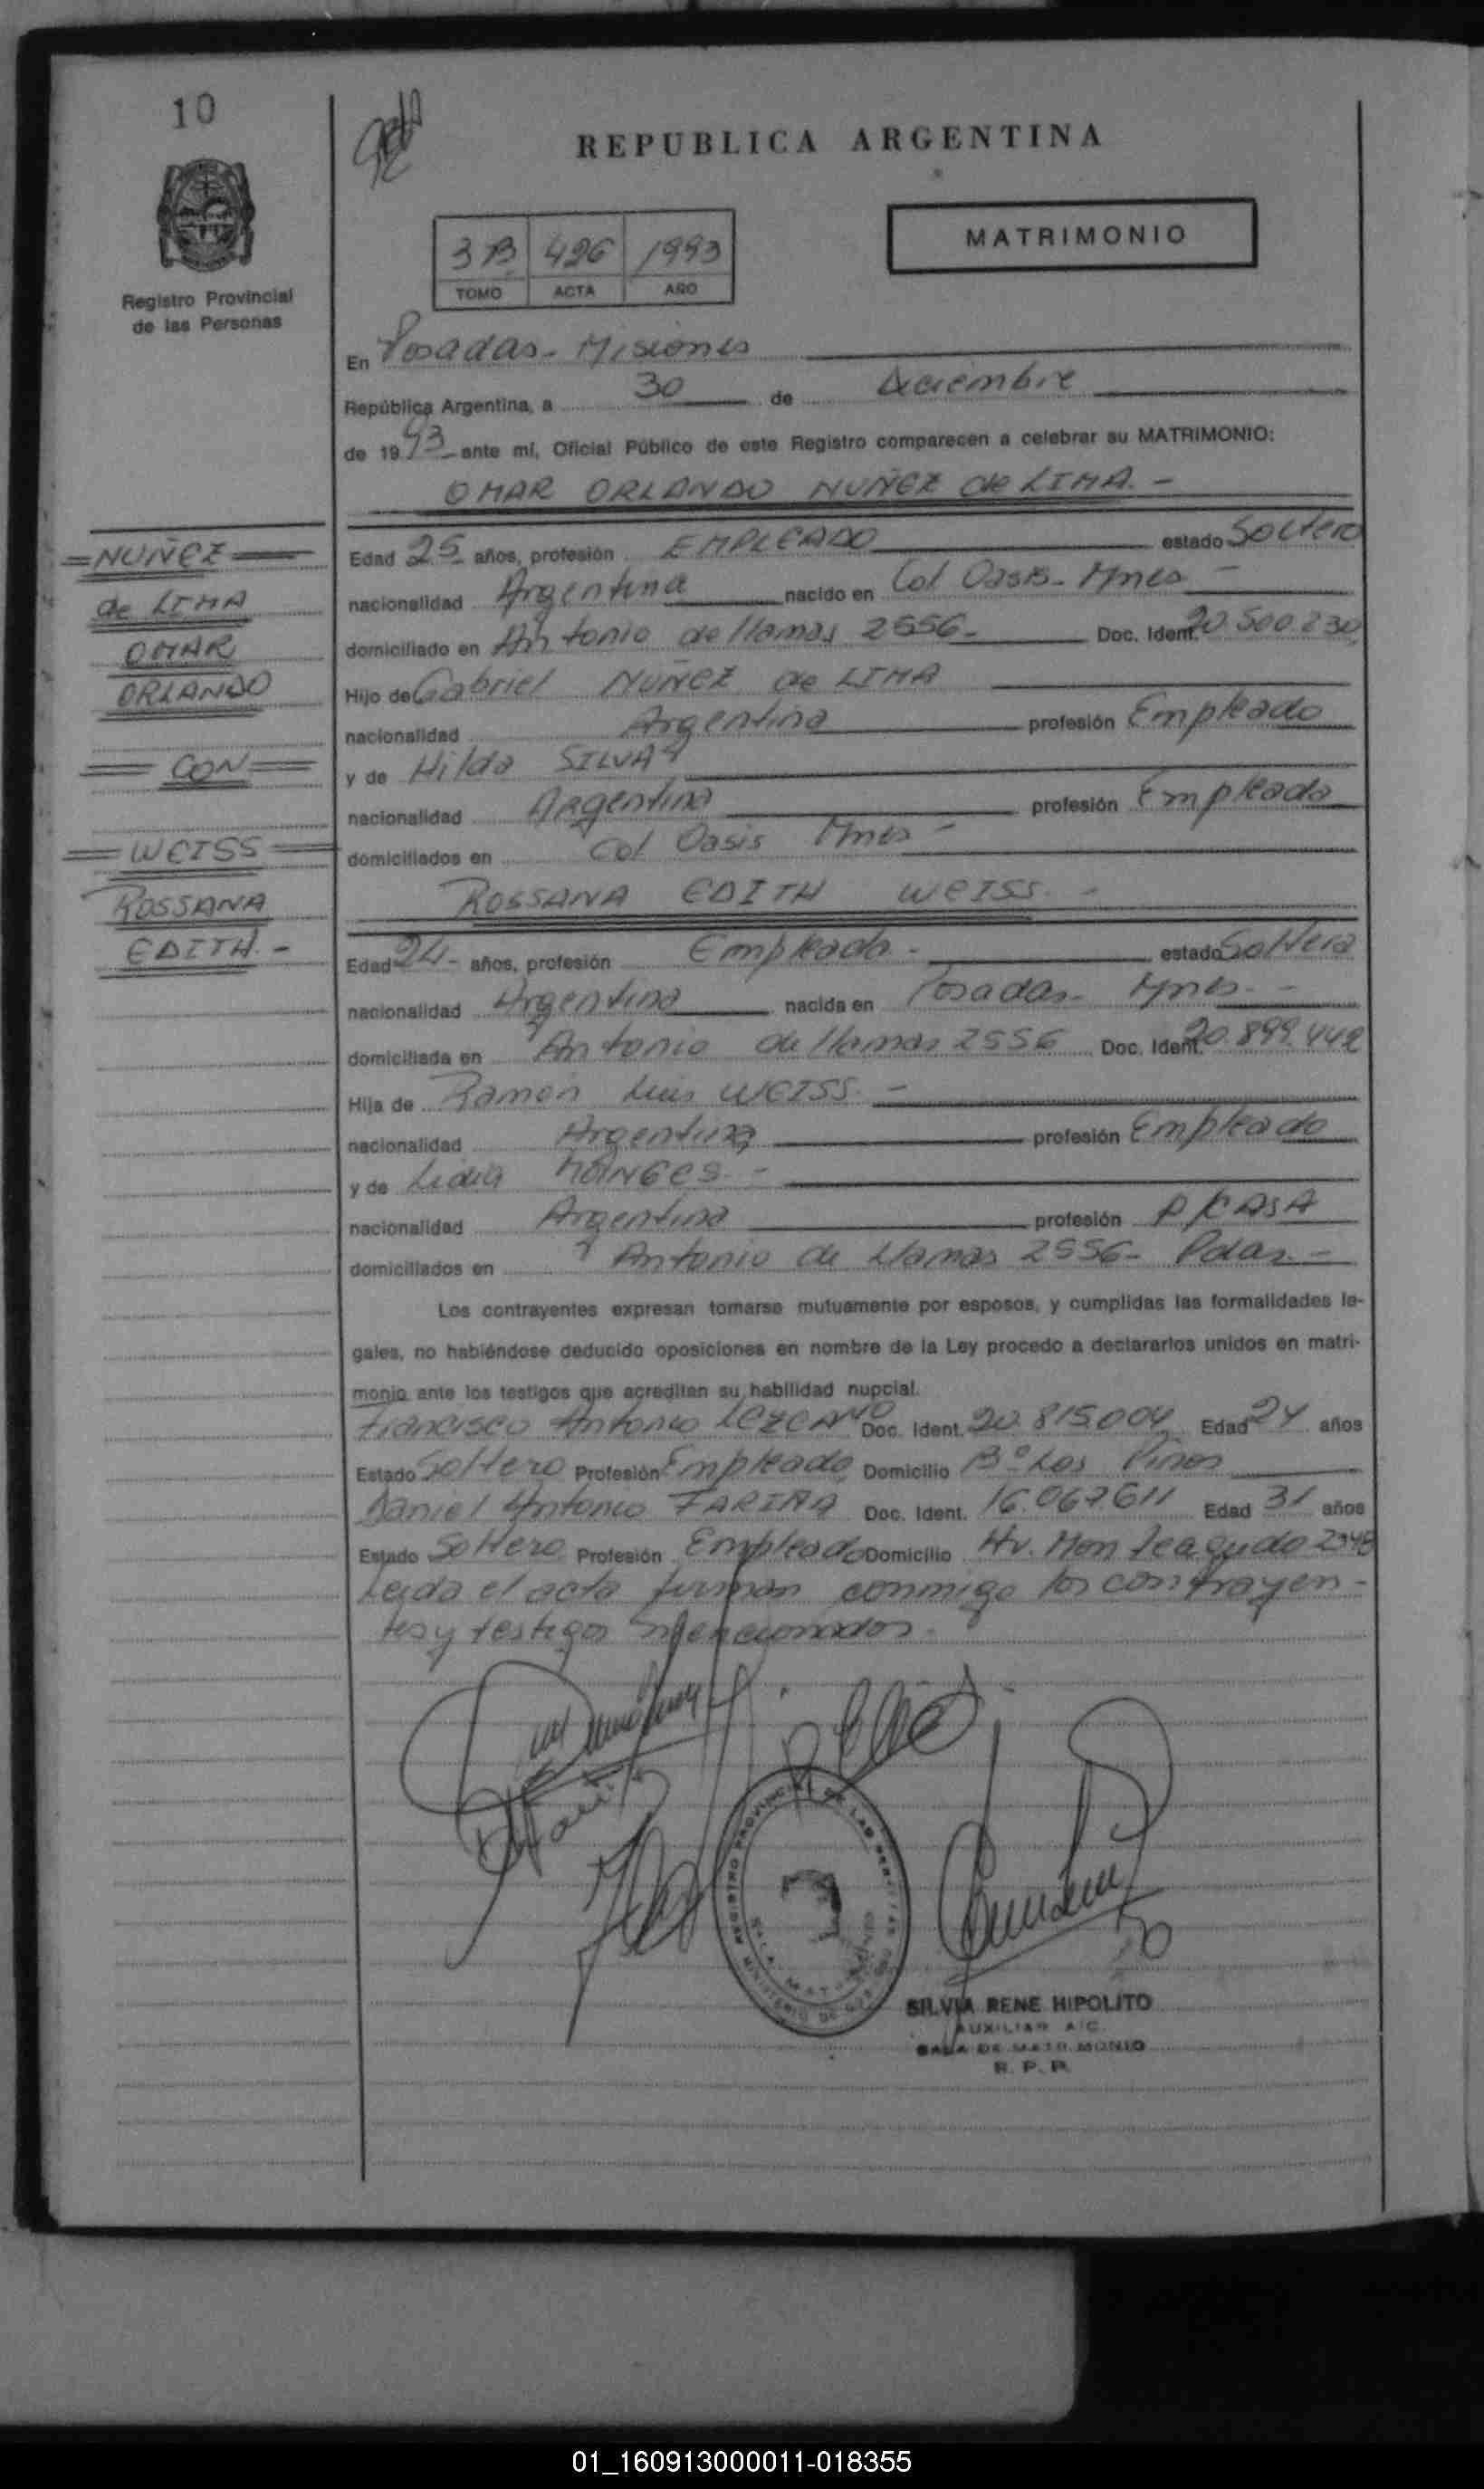 10
REPUBLICA ARGENTINA
MATRIMONIO
3 B 426 1993
TOMO ACTA AÑO
Registro Provincial
de las Personas
En Posadas - Misiones
República Argentina, a 30 de diciembre
de 1993 ante mí, Oficial Público de este Registro comparecen a celebrar su MATRIMONIO:
OMAR ORLANDO NUÑEZ de LIMA. -
Edad 25 años, profesión EMPLEADO estado Soltero
nacionalidad Argentina nacido en Col Oasis - Mnes -
domiciliado en Antonio de llamas 2556 - Doc. Ident. 20.500.230
Hijo de Gabriel NUÑEZ de LIMA
nacionalidad Argentina profesión Empleado
y de Hilda SILVA
nacionalidad Argentina profesión Empleada
domiciliados en Col Oasis Mnes -
ROSSANA EDITH WEISS. -
Edad 24 - años, profesión Empleada - estado Soltera
nacionalidad Argentina nacida en Posadas - Mnes - -
domiciliada en Antonio de llamas 2556 Doc. Ident. 20.899.442
Hija de Ramón Luis WEISS. -
nacionalidad Argentina profesión Empleado
y de Lidia
nacionalidad Argentina profesión A/CASA
domiciliados en Antonio de Llamas 2556 - Pdas. -
Los contrayentes expresan tomarse mutuamente por esposos, y cumplidas las formalidades le-
gales, no habiéndose deducido oposiciones en nombre de la Ley procedo a declararlos unidos en matri-
monio ante los testigos que acreditan su habilidad nupcial.
Francisco Antonio LEZCANO Doc. Ident. 20.815.004 Edad 24 años
Estado Soltero Profesión Empleado Domicilio Bº Los Pinos
Daniel Antonio FARIÑA Doc. Ident. 16.067.611 Edad 31 años
Estado Soltero Profesión Empleado Domicilio Av. Monteagudo 2948
Leída el acta firman conmigo los contrayen-
tes y testigos mencionados -
=NUÑEZ=
de LIMA
OMAR
ORLANDO
= CON =
= WEISS =
ROSSANA
EDITH. -
REGISTRO PROVINCIAL DE LAS PERSONAS
SILVIA RENE HIPOLITO
AUXILIAR A/C
SALA DE MATRIMONIO
R. P. P.
01_160913000011-018355